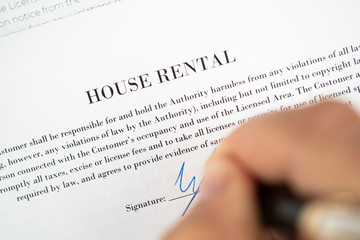 the License
on notice from the
HOUSE RENTAL
ustomer shall be responsible for and hold the Authority harmless from any violations of all
ng, however, any violations of law by the Authority), including but not limited to copyright
rson connected with the Customer's occupancy and use of the Licensed Area. The Customer
promptly all taxes, excise or license fees and to take all licenses or for use of licensed
required by law, and agrees to provide evidence of
Signature: